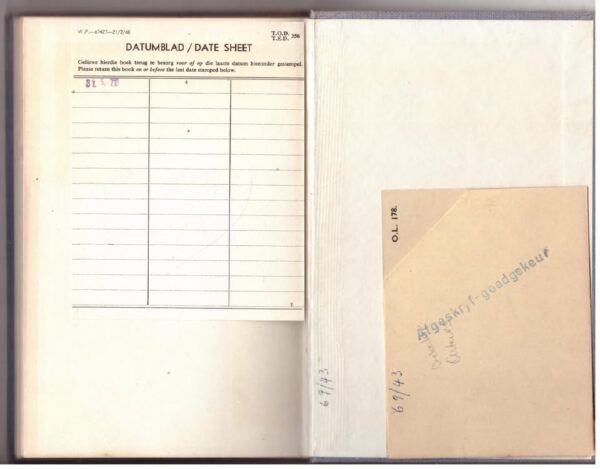 T.O.D.
T.E.D. 356
DATUMBLAD / DATE SHEET
Geliewe hierdie boek terug te besorg voor of op die laaste datum hieronder gestempel.
Please return this book on or before the last date stamped below.
O.L. 178.
Afgeskryf-goedgekeur
69/43
69/43